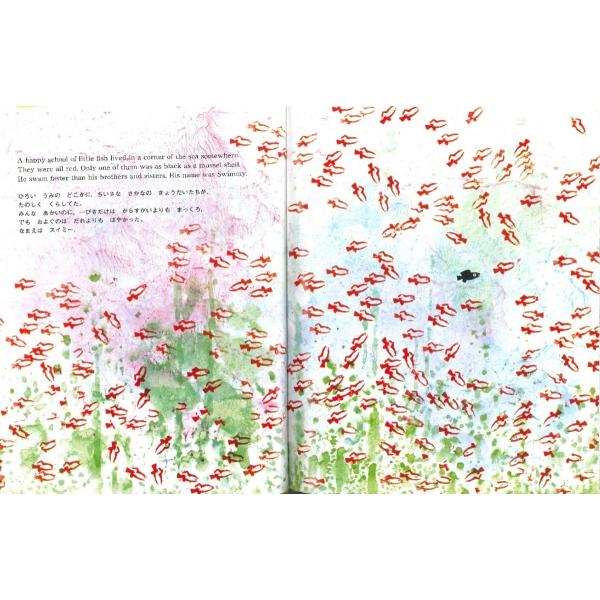 A happy school of little fish lived in a corner of the sea somewhere.
They were all red. Only one of them was as black as a mussel shell.
He swam faster than his brothers and sisters. His name was Swimmy.
ひろい うみの どこかに、ちいさな さかなの きょうだいたちが、
たのしく くらしてた。
みんな あかいのに、一ぴきだけは からすがいよりも まっくろ、
でも およぐのは だれよりも はやかった。
なまえは スイミー。